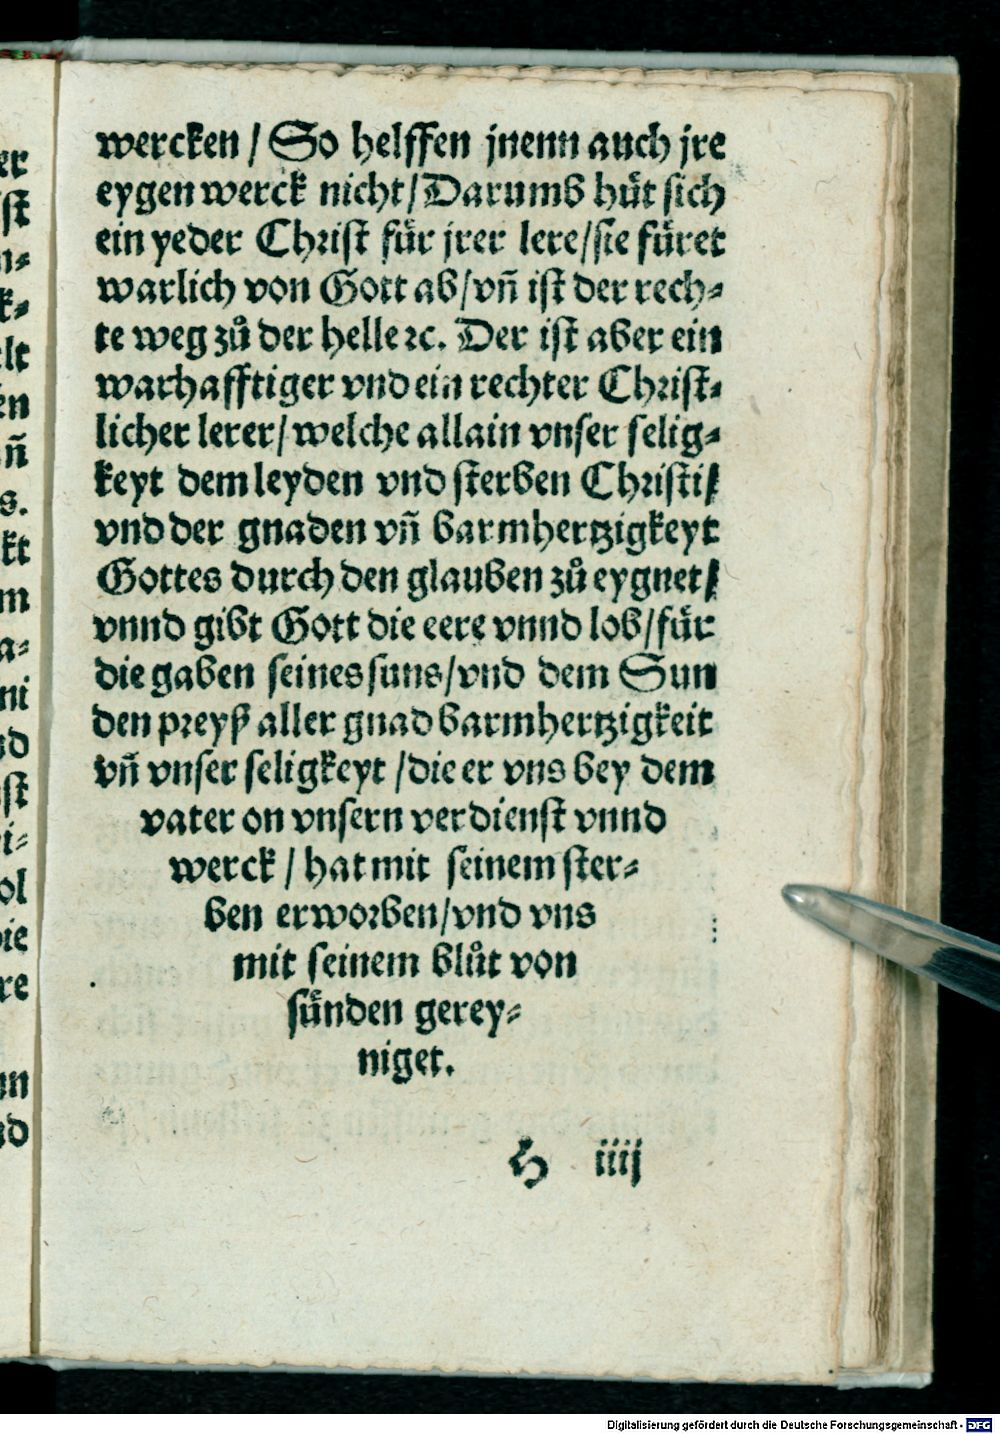 wercken / So helffen jnenn auch jre
eygen werck nicht / Darumb huͤt sich
ein yeder Christ fuͤr jrer lere / sie fuͤret
warlich von Gott ab / vñ ist der rech⸗
te weg zuͦ der helle ꝛc. Der ist aber ein
warhafftiger vnd ein rechter Christ⸗
licher lerer / welche allain vnser selig⸗
keyt dem leyden vnd sterben Christi /
vnd der gnaden vñ barmhertzigkeyt
Gottes durch den glauben zuͦ eygnet /
vnnd gibt Gott die eere vnnd lob / fuͤr
die gaben seines suns / vnd dem Sun
den preyß aller gnad barmhertzigkeit
vñ vnser seligkeyt / die er vns bey dem
vater on vnsern verdienst vnnd
werck / hat mit seinem ster⸗
ben erworben / vnd vns
mit seinem bluͦt von
suͤnden gerey⸗
niget.
H iiij
Digitalisierung gefördert durch die Deutsche Forschungsgemeinschaft - DFG